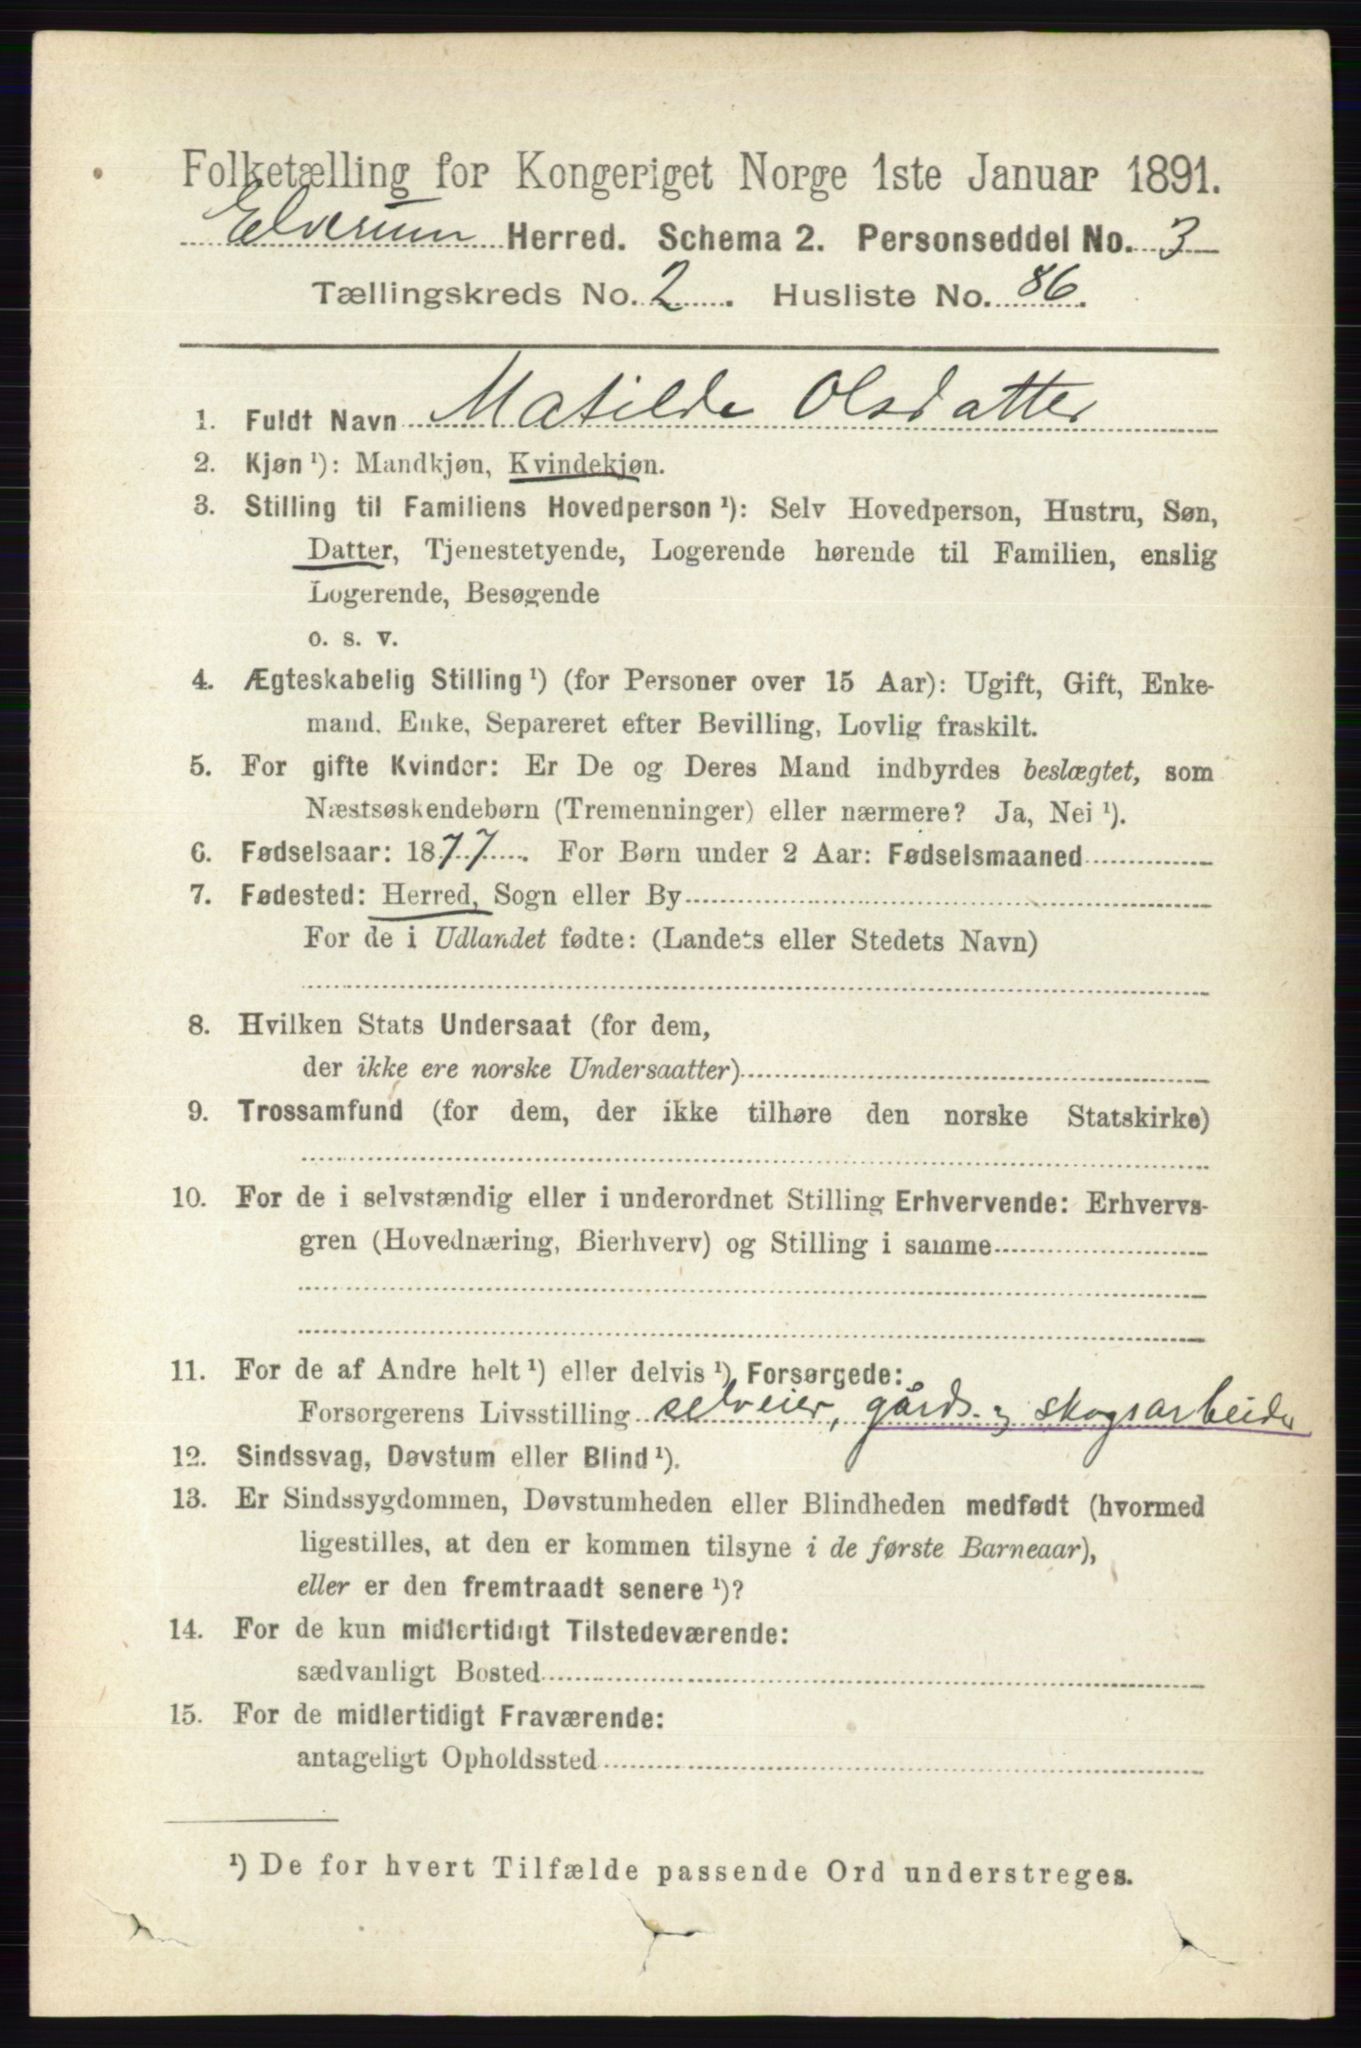 Folketælling for Kongeriget Norge 1ste Januar 1891.
Elverum Herred. Schema 2. Personseddel No. 3
Tællingskreds No. 2. Husliste No. 86.
1. Fuldt Navn Matilde Olsdatter
2. Kjøn ¹): Mandkjøn, Kvindekjøn.
3. Stilling til Familiens Hovedperson ¹): Selv Hovedperson, Hustru, Søn,
Datter, Tjenestetyende, Logerende hørende til Familien, enslig
Logerende, Besøgende
o. s. v.
4. Ægteskabelig Stilling ¹) (for Personer over 15 Aar): Ugift, Gift, Enke-
mand, Enke, Separeret efter Bevilling, Lovlig fraskilt.
5. For gifte Kvinder: Er De og Deres Mand indbyrdes beslægtet, som
Næstsøskendebørn (Tremenninger) eller nærmere? Ja, Nei ¹).
6. Fødselsaar: 1877. For Børn under 2 Aar: Fødselsmaaned
7. Fødested: Herred, Sogn eller By
For de i Udlandet fødte: (Landets eller Stedets Navn)
8. Hvilken Stats Undersaat (for dem,
der ikke ere norske Undersaatter)
9. Trossamfund (for dem, der ikke tilhøre den norske Statskirke)
10. For de i selvstændig eller i underordnet Stilling Erhvervende: Erhvervs-
gren (Hovednæring, Bierhverv) og Stilling i samme
11. For de af Andre helt ¹) eller delvis ¹) Forsørgede:
Forsørgerens Livsstilling selveier, gårds- og skogsarbeider
12. Sindssvag, Døvstum eller Blind ¹).
13. Er Sindssygdommen, Døvstumheden eller Blindheden medfødt (hvormed
ligestilles, at den er kommen tilsyne i de første Barneaar),
eller er den fremtraadt senere ¹)?
14. For de kun midlertidigt Tilstedeværende:
sædvanligt Bosted
15. For de midlertidigt Fraværende:
antageligt Opholdssted
¹) De for hvert Tilfælde passende Ord understreges.